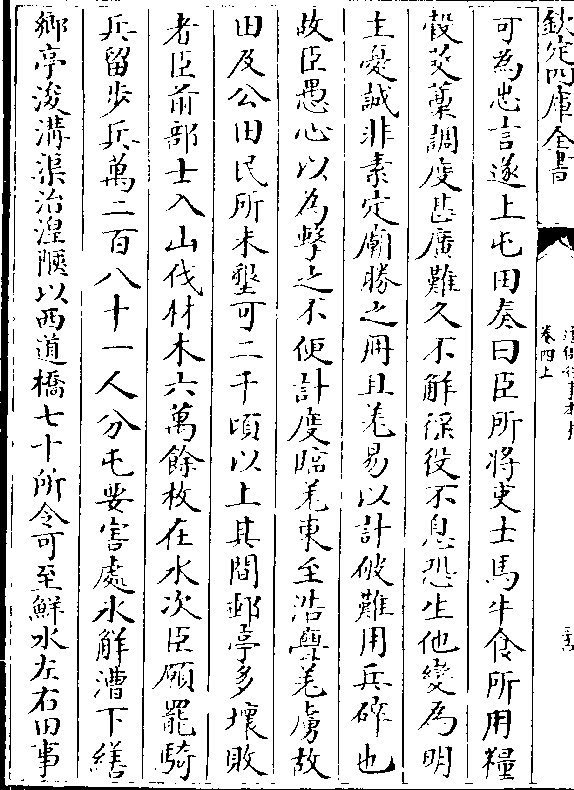 欽定四庫全書
卷四上
可為忠言遂上屯田奏曰臣所將吏士馬牛食所用糧
穀茭藁調度甚廣難久不解徭役不息恐生他變為明
主憂誠非素定廟勝之冊且羌易以計破難用兵碎也
故臣愚心以為擊之不便計度臨羌東至浩亹羌虜故
田及公田民所未墾可二千頃以上其間郵亭多壞敗
者臣前部士入山伐材木六萬餘枚在水次臣願罷騎
兵留步兵萬二百八十一人分屯要害處水解漕下繕
鄉亭浚溝渠治湟陿以西道橋七十所令可至鮮水左右田事